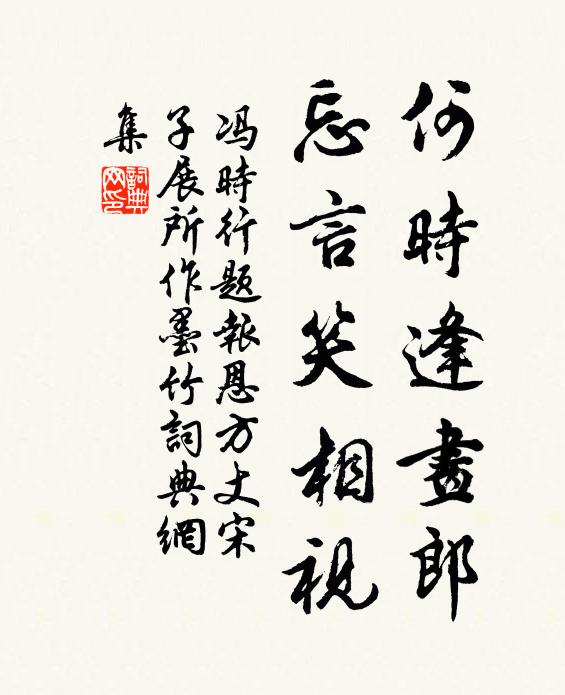 何時逢畫郎
忘言笑相視
馮時行題報恩方丈宋
子展所作墨竹詞典網
集
詞典
网印